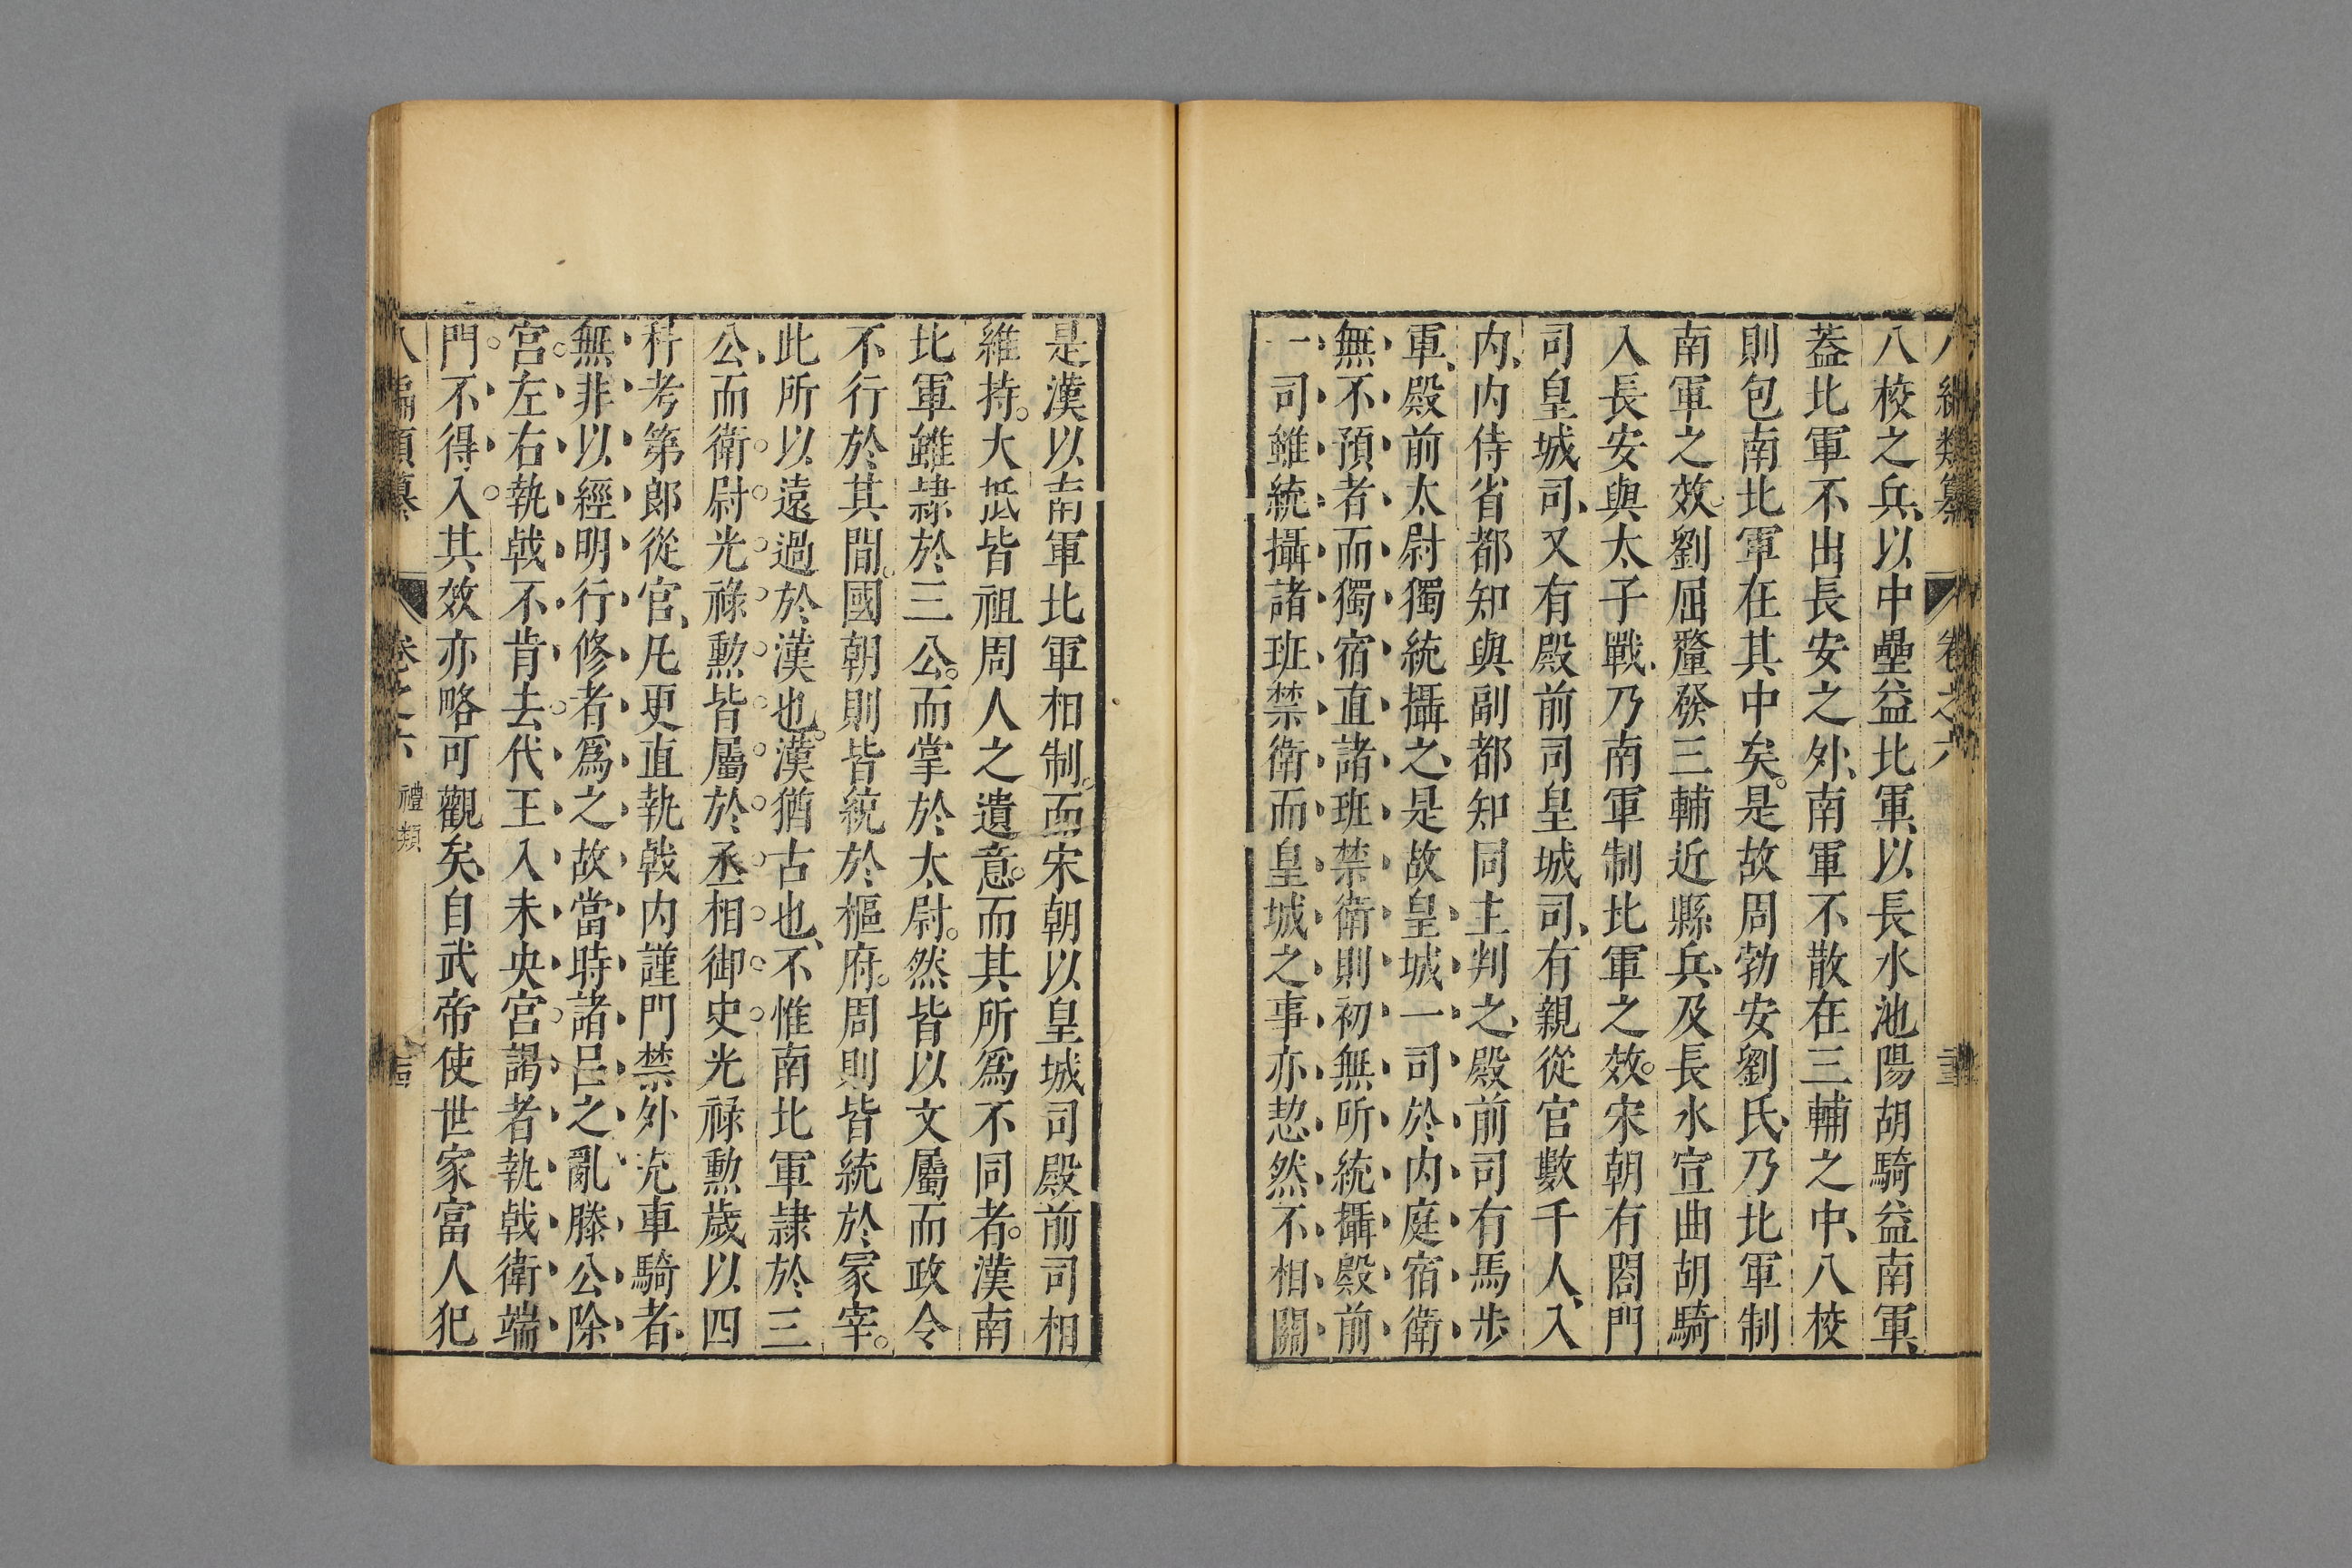 八編類纂 卷之六
八校之兵、以中壘益北軍、以長水池陽胡騎益南軍、
葢北軍不出長安之外、南軍不散在三輔之中、八校
則包南北軍在其中矣。是故周勃安劉氏、乃北軍制
南軍之效。劉屈氂發三輔近縣兵、及長水宣曲胡騎
入長安與太子戰、乃南軍制北軍之效。宋朝有閤門
司皇城司、又有殿前司皇城司、有親從官數千人、入
内、内侍省都知與副都知同主判之、殿前司有馬步
軍、殿前太尉獨統攝之、是故皇城一司於内庭宿衛
無不預者而獨宿直諸班禁衛則初無所統攝殿前
一司雖統攝諸班禁衛而皇城之事亦恝然不相關
是漢以南軍北軍相制。而宋朝以皇城司殿前司相
維持。大抵皆祖周人之遺意。而其所爲不同者。漢南
北軍雖隷於三公。而掌於太尉。然皆以文屬而政令
不行於其間。國朝則皆統於樞府。周則皆統於冢宰。
此所以遠過於漢也。漢猶古也、不惟南北軍隷於三
公、而衛尉光祿勲皆屬於丞相御史光祿勲歲以四
科考第郎從官、凡更直執戟内謹門禁外充車騎者、
無非以經明行修者爲之故當時諸吕之亂滕公除
宮左右執戟不肯去代王入未央宮謁者執戟衛端
門不得入其效亦略可觀矣、自武帝使世家富人犯
八編類纂 卷之六 禮類